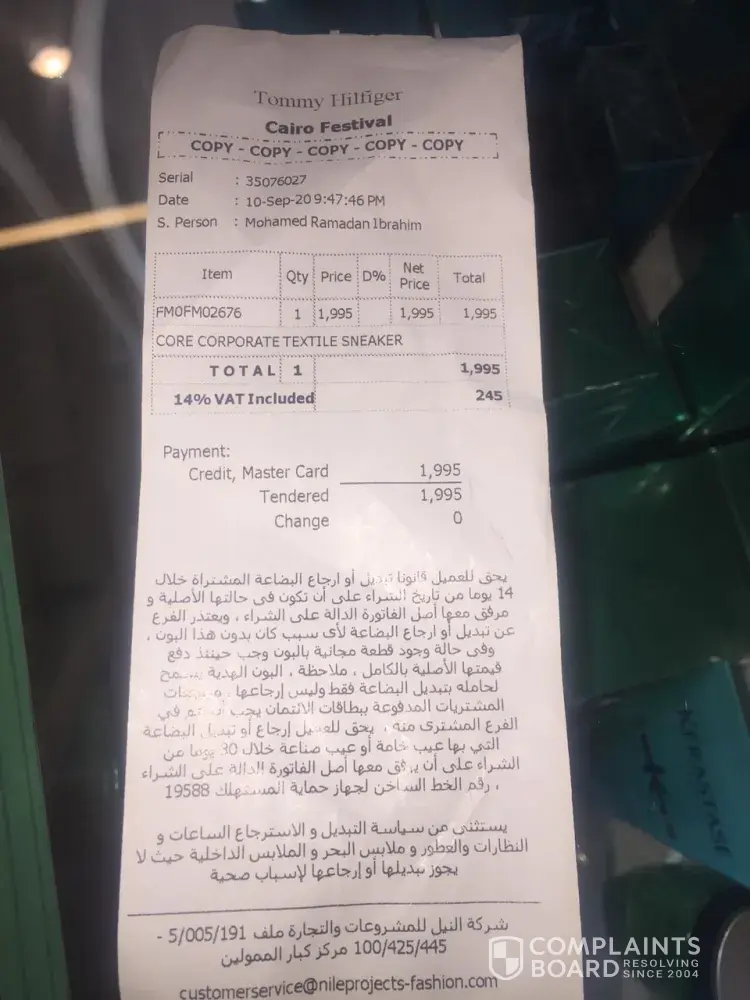 Tommy Hilfiger
Cairo Festival
COPY - COPY - COPY - COPY - COPY
Serial : 35076027
Date : 10-Sep-20 9:47:46 PM
S. Person : Mohamed Ramadan Ibrahim
Item Qty Price D% Net Price Total
FM0FM02676 1 1,995 1,995 1,995
CORE CORPORATE TEXTILE SNEAKER
TOTAL 1 1,995
14% VAT Included 245
Payment:
Credit, Master Card 1,995
Tendered 1,995
Change 0
يحق للعميل قانونا تبديل أو ارجاع البضاعة المشتراة خلال
14 يوما من تاريخ الشراء على أن تكون فى حالتها الأصلية و
مرفق معها أصل الفاتورة الدالة على الشراء ، ويعتذر الفرع
عن تبديل أو ارجاع البضاعة لأى سبب كان بدون هذا البون ،
وفى حالة وجود قطعة مجانية بالبون وجب حينئذ دفع
قيمتها الأصلية بالكامل ، ملاحظة ، البون الهدية يسمح
لحامله بتبديل البضاعة فقط وليس إرجاعها ،
المشتريات المدفوعة ببطاقات الائتمان يجب أن تتم في
الفرع المشترى منه ، يحق للعميل إرجاع أو تبديل البضاعة
التي بها عيب خامة أو عيب صناعة خلال 30 يوما من
الشراء على أن يرفق معها أصل الفاتورة الدالة على الشراء
، رقم الخط الساخن لجهاز حماية المستهلك 19588
يستثنى من سياسة التبديل و الاسترجاع الساعات و
النظارات والعطور و ملابس البحر و الملابس الداخلية حيث لا
يجوز تبديلها أو إرجاعها لإسباب صحية
شركة النيل للمشروعات والتجارة ملف 5/005/191 -
100/425/445 مركز كبار الممولين
customerservice@nileprojects-fashion.com
KERASTASE
COMPLAINTS
BOARD RESOLVING SINCE 2004